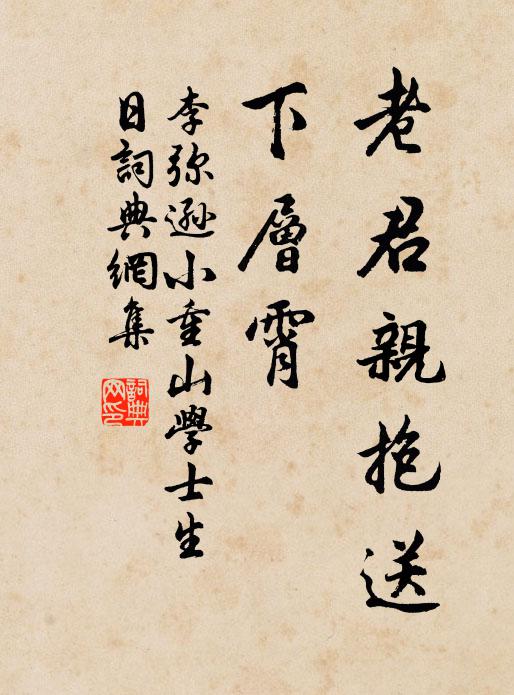 老君親抱送
下層霄
李弥遜小重山學士生
日詞典網集
詞典
网印